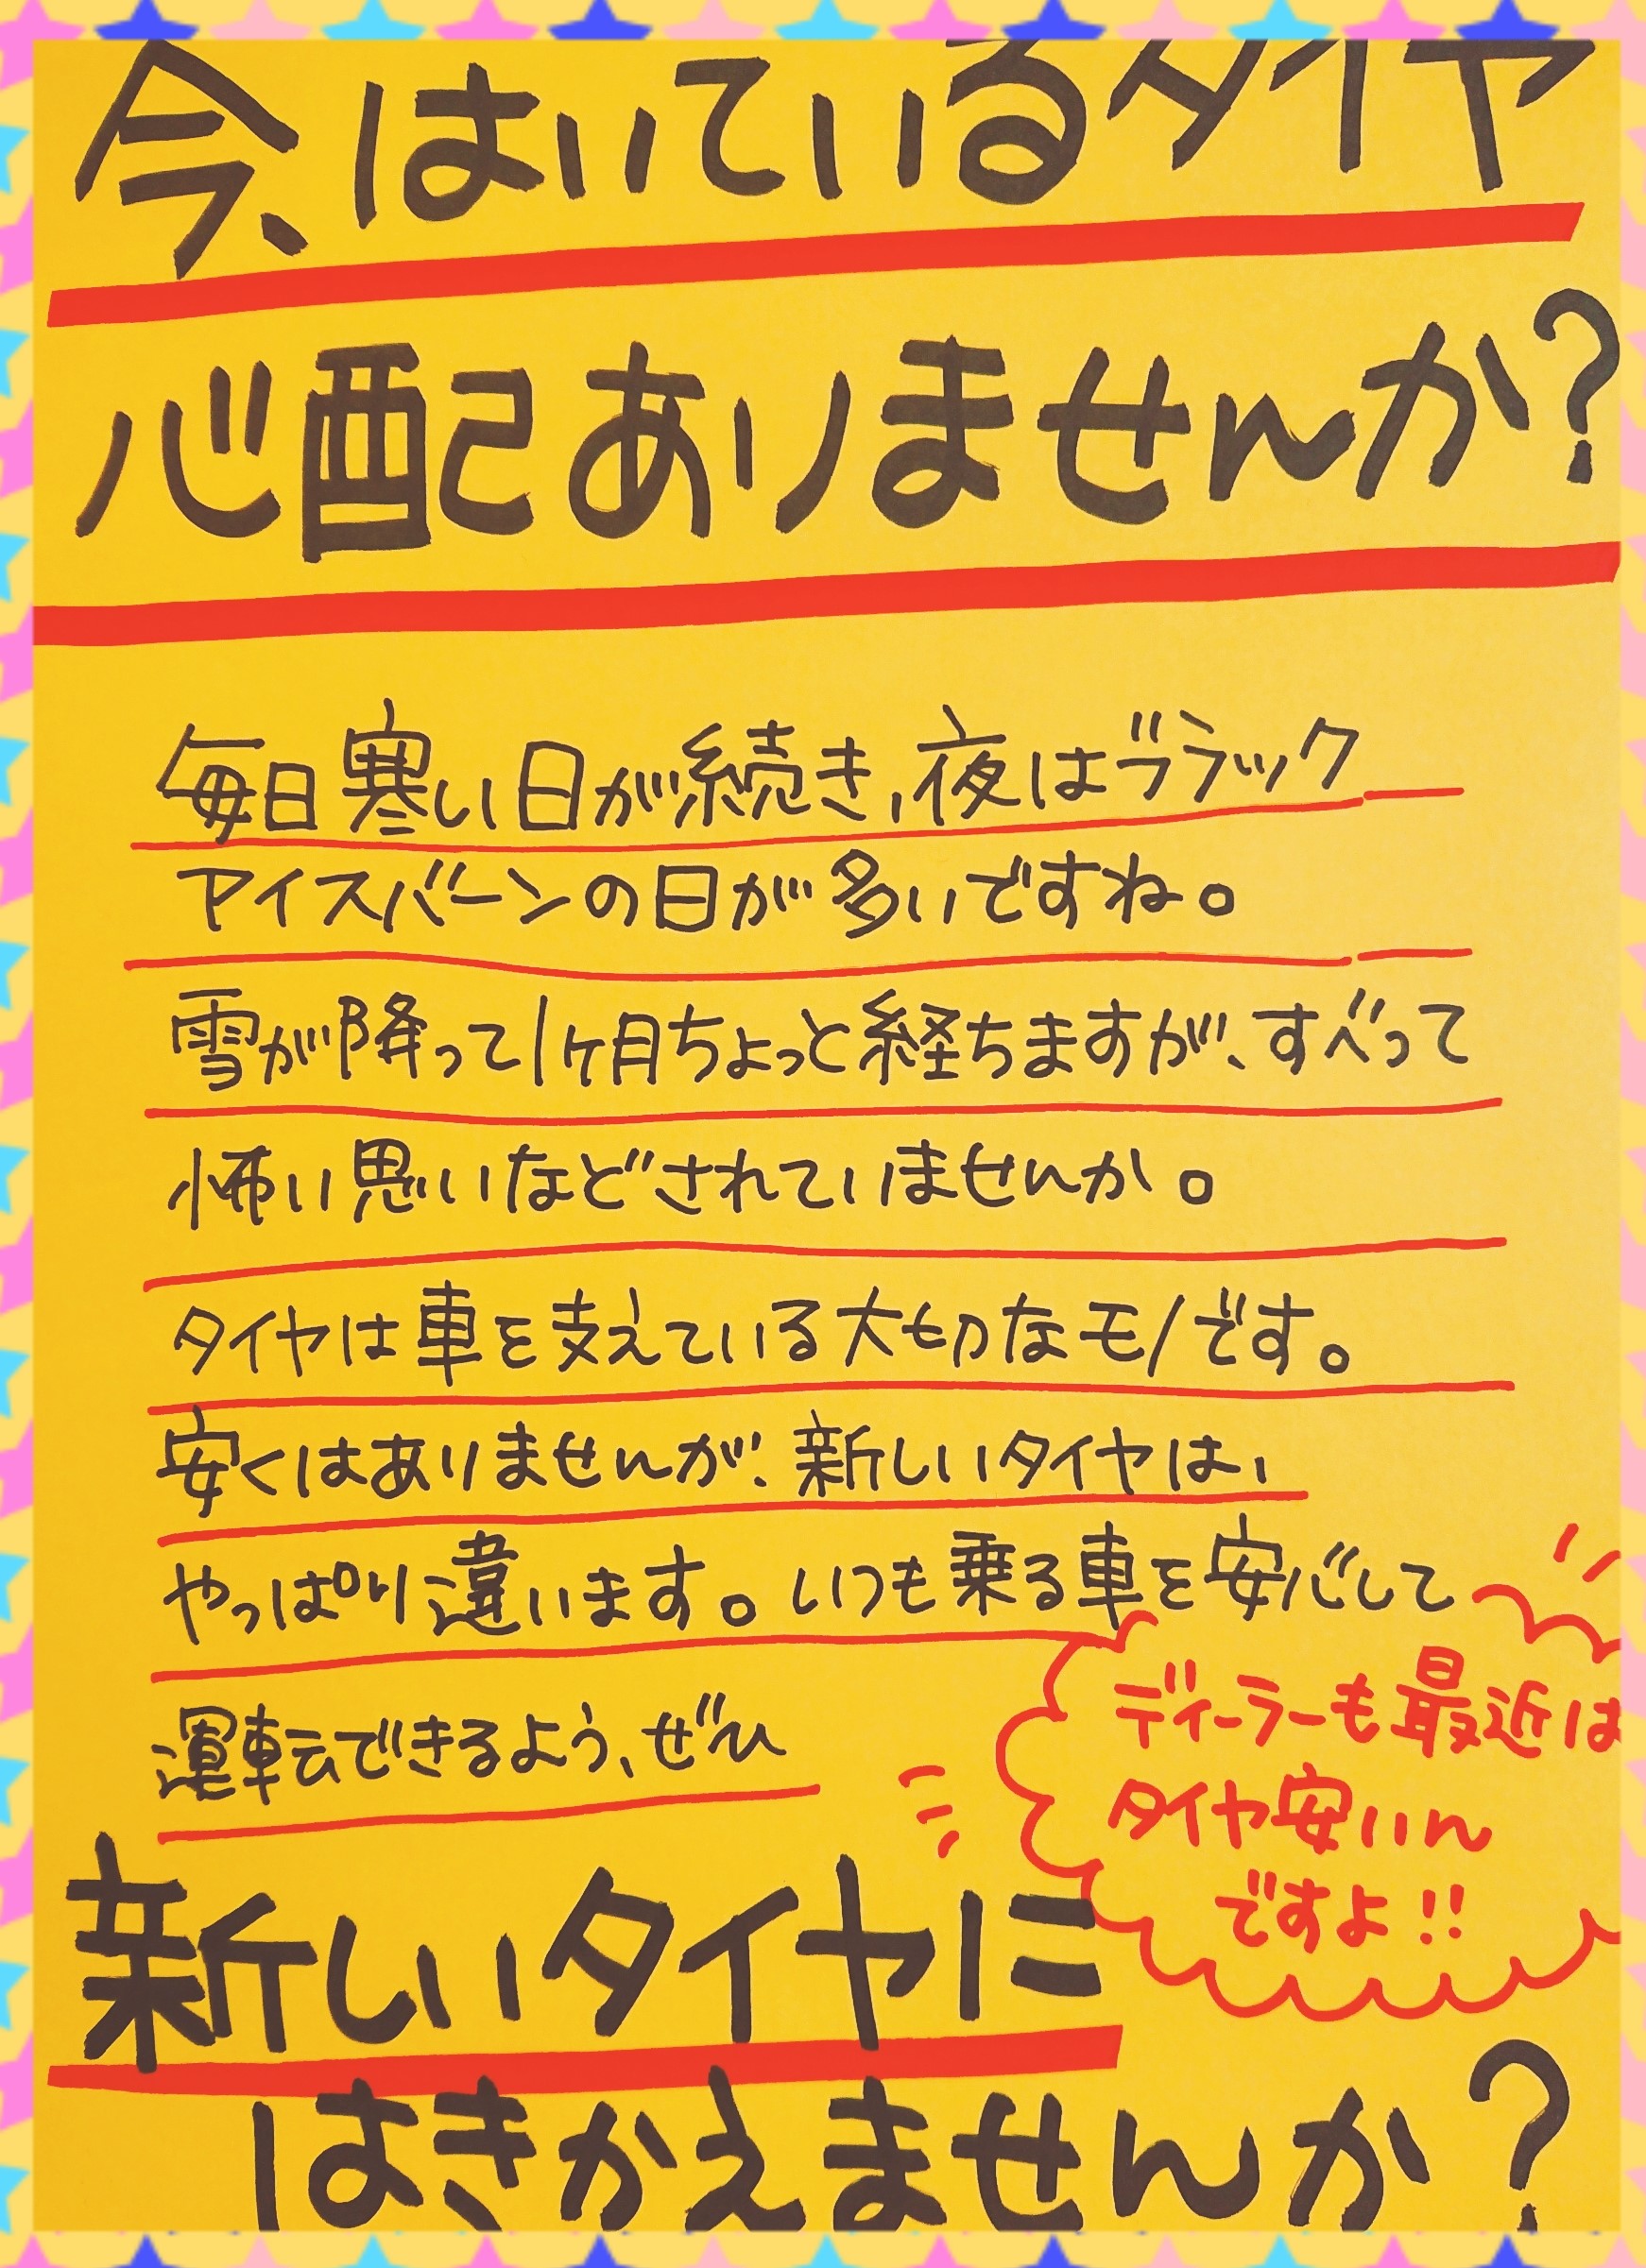 今、はいているタイヤ
心配ありませんか?
毎日寒い日が続き、夜はブラック
アイスバーンの日が多いですね。
雪が降って1ヶ月ちょっと経ちますが、すべって
怖い思いなどされていませんか。
タイヤは車を支えている大切なモノです。
安くはありませんが、新しいタイヤは、
やっぱり違います。いつも乗る車を安心して
運転できるよう、ぜひ
ディーラーも最近は
タイヤ安いん
ですよ!!
新しいタイヤに
はきかえませんか?